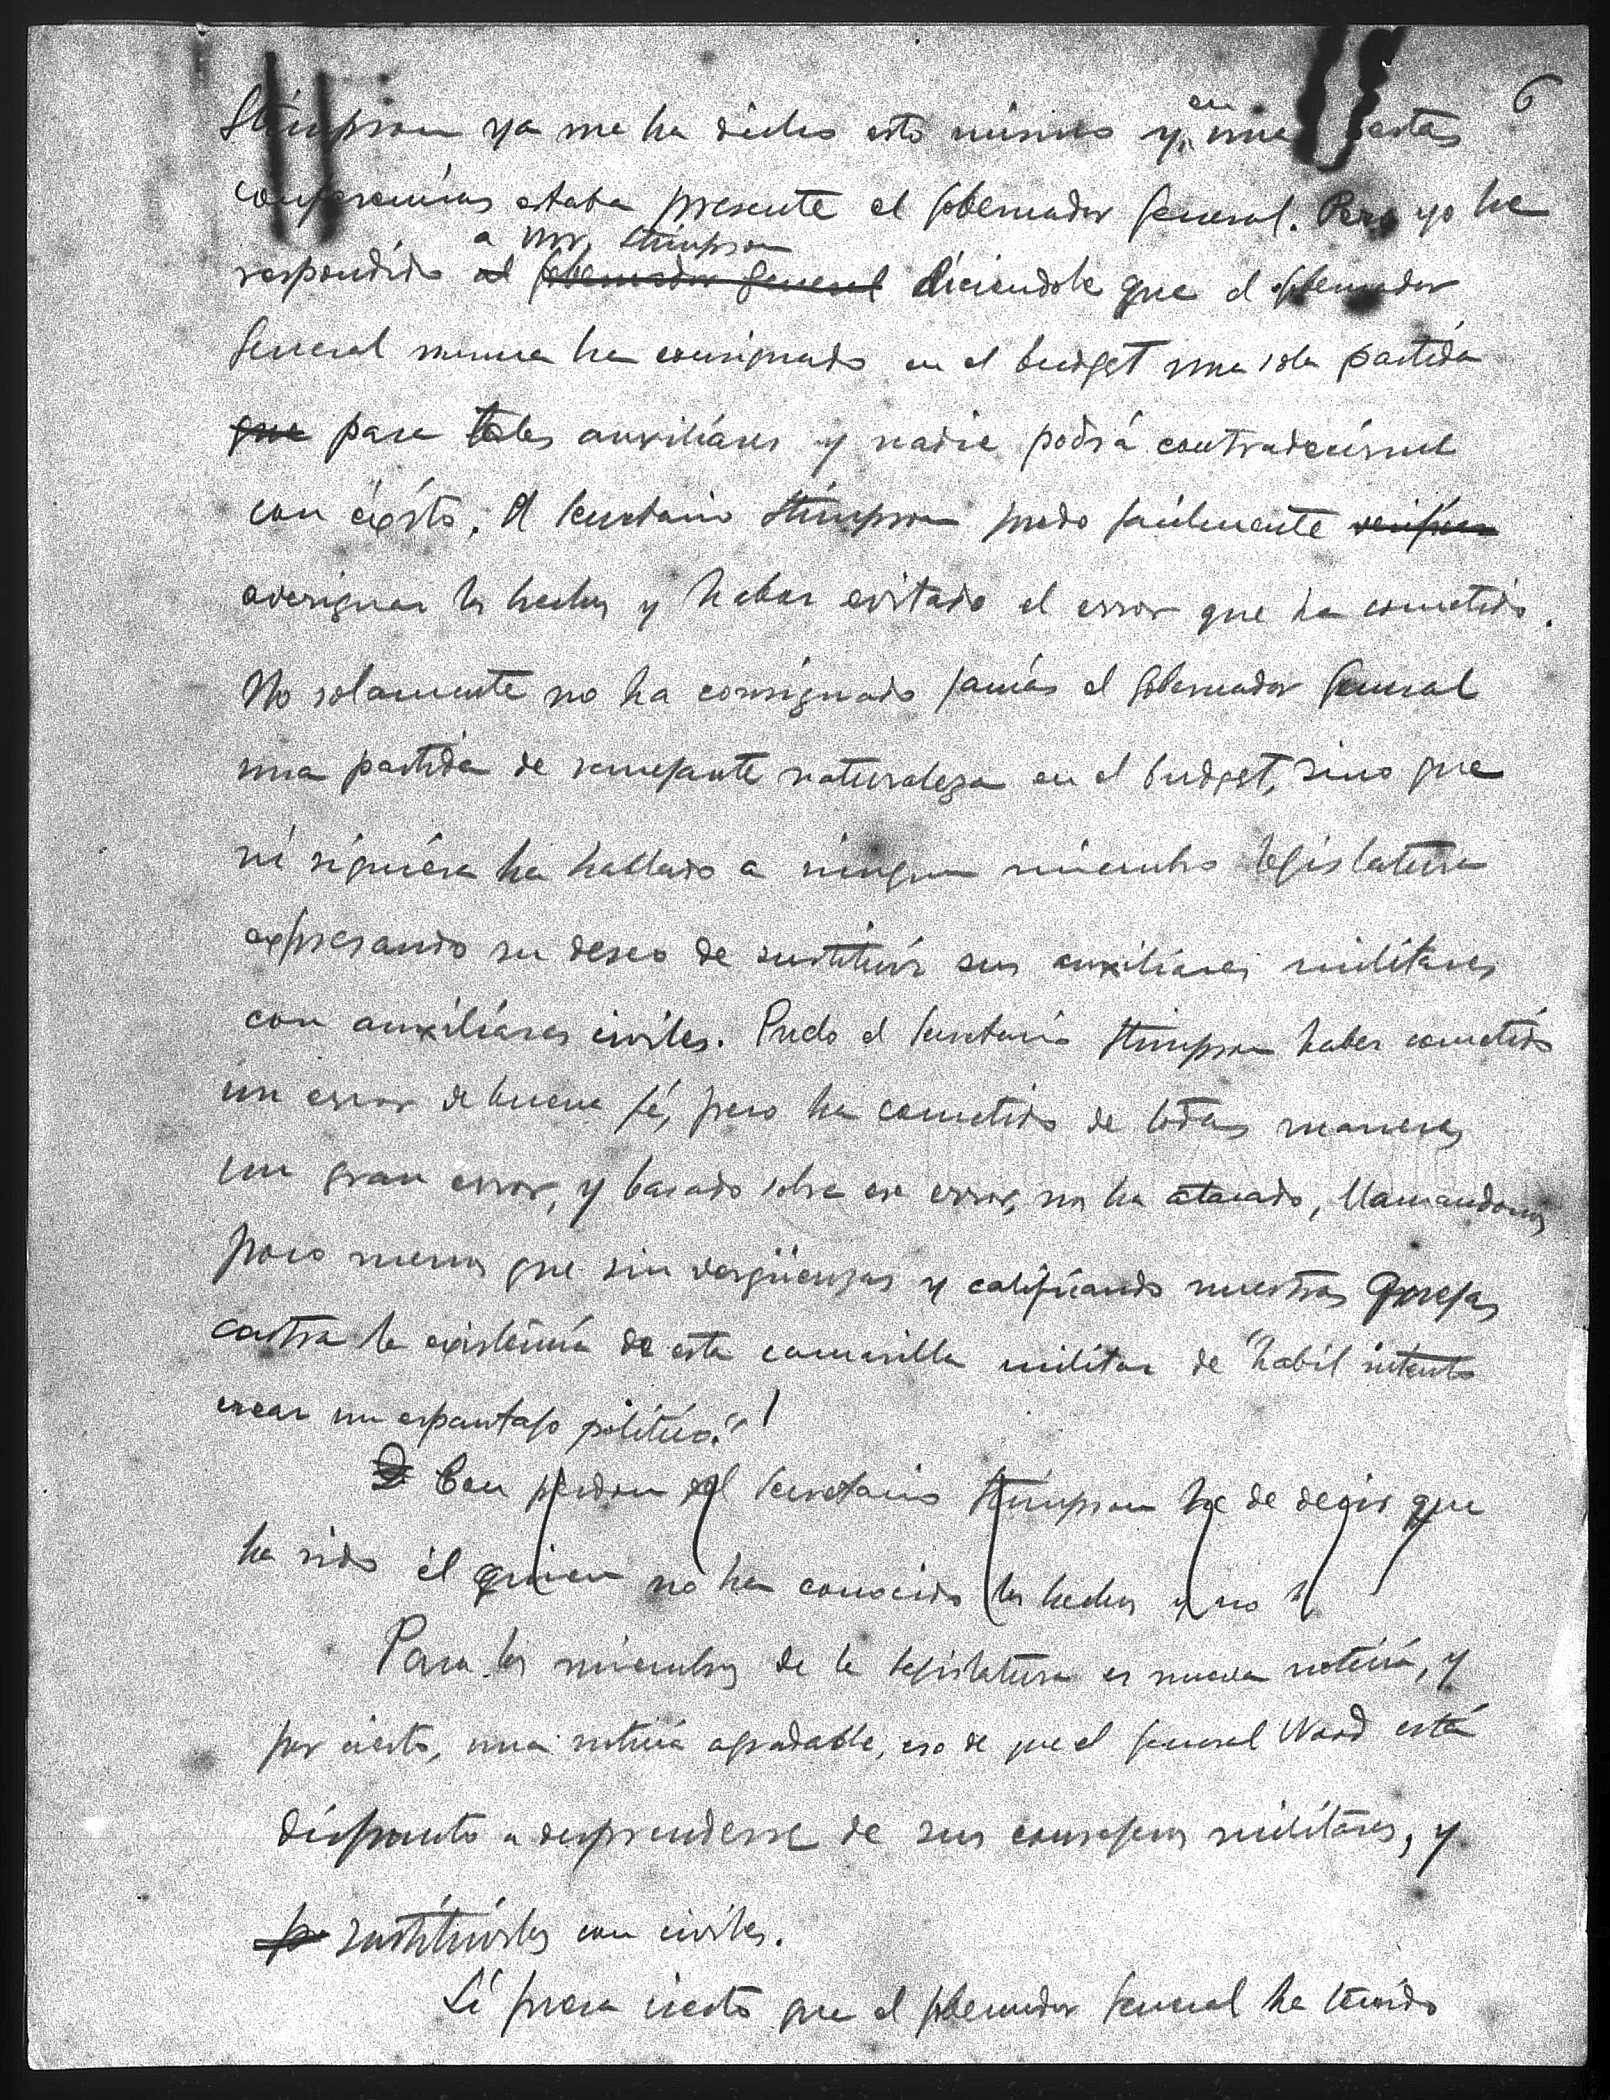 6
Stimpson ya me ha dicho esto mismo y en una estas
conferencias estaba presente el Gobernador General. Pero yo he
respondido al Gobernador General a Mr. Stimpson diciendole que el Gobernador
General nunca ha consignado en el budget una sola partida
que para tales auxiliares y nadie podrá contradecirme
con éxito. El Secretario Stimpson pudo fácilmente verificar
averiguar los hechos y haber evitado el error que ha cometido.
No solamente no ha consignado jamás el Gobernador General
una partida de semejante naturaleza en el budget, sino que
ni siquiera ha hablado a ningun miembro legislatura
expresando su deseo de sustituir sus auxiliares militares
con auxiliares civiles. Pudo el Secretario Stimpson haber cometido
un error de buena fé, pero ha cometido de todas maneras
un gran error, y basado sobre ese error, nos ha atacado, llamandonos
poco menos que sin vergüenzas y calificando nuestras quejas
contra la existencia de esta camarilla militar de "habil intento
crear un espantajo politico."!
Con perdon del Secretario Stimpson he de decir que
ha sido él quien no ha conocido los hechos y no
Para los miembros de la legislatura es nueva noticia, y
por cierto, una noticia agradable, eso de que el General Wood está
dispuesto a desprenderse de sus consejeros militares, y
sustituirles con civiles.
Si fuera cierto que el Gobernador General ha tenido